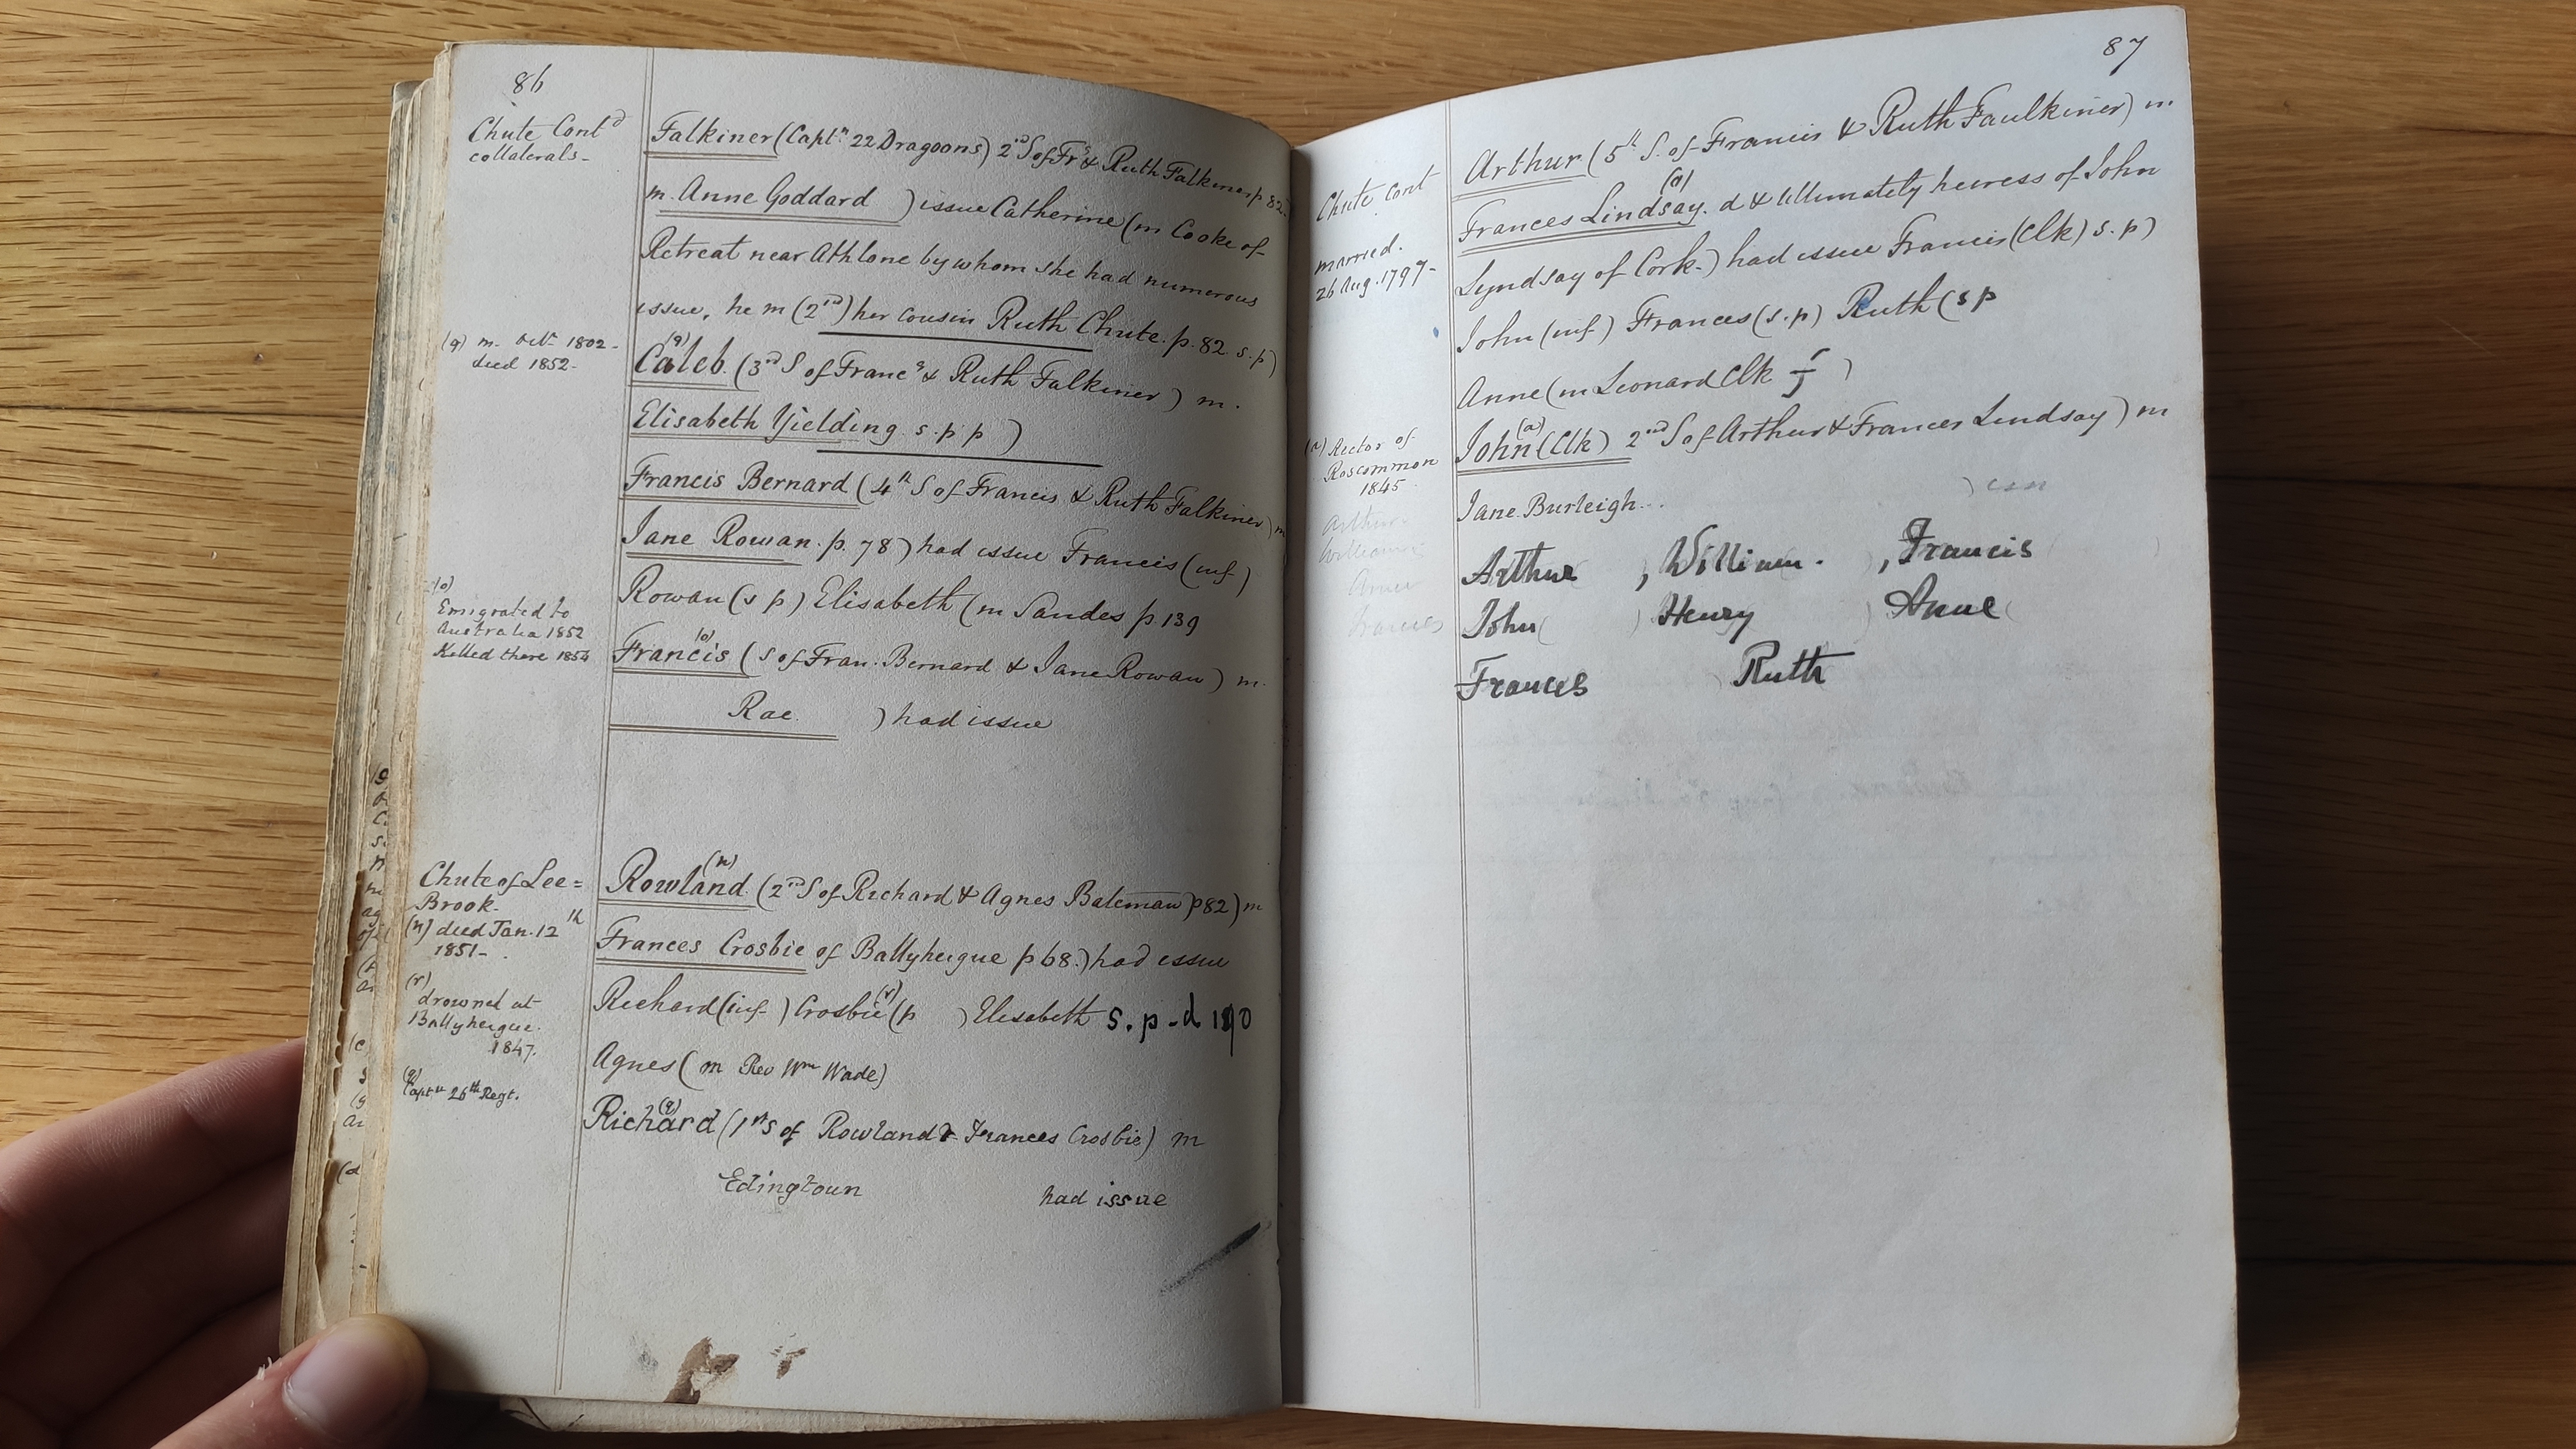 86
Chute Contd
collaterals-
Falkiner (Captn 22 Dragoons) 2nd S of Frs & Ruth Falkiner p 82.
m. Anne Goddard ) issue Catherine (m Cooke of
Retreat near Athlone by whom she had numerous
issue, he m (2nd) her cousin Ruth Chute. p. 82. s. p)
(q) m. Octr 1802-
died 1852-
Caleb (q) (3rd S of Francs & Ruth Falkiner) m.
Elisabeth Yielding. s. p p )
Francis Bernard (4th S of Francis & Ruth Falkiner) m
Jane Rowan. p. 78) had issue Francis (inf)
Rowan (s p) Elisabeth (m Sandes p 139
(o)
Emigrated to
Australia 1852
Killed there 1854
Francis (o) (S of Fran. Bernard & Jane Rowan) m.
Rae. ) had issue
Chute of Lee=
Brook-
(n) died Jan. 12th
1851-
Rowland (n) (2nd S of Richard & Agnes Bateman p 82) m
Frances Crosbie of Ballyheigue p 68.) had issue
(r)
drowned at
Ballyheigue.
1847.
Richard (inf ) Crosbie (r) (p ) Elisabeth s. p - d
Agnes ( m Rev Wm Wade)
(q)
Captn 26th Regt.
Richard (q) (1st S of Rowland & Frances Crosbie) m
Edingtoun had issue
87
Chute Cont
Arthur (5th S. of Francis & Ruth Faulkiner) m.
married.
26 Aug. 1797-
Frances Lindsay. (a) d & Ultimately heiress of John
Lyndsay of Cork.) had issue Francis (Clk) s. p)
John (inf) Frances (s. p) Ruth (s p
Anne (m Leonard Clk )
(a) Rector of
Roscommon
1845.
John (a) (Clk) 2nd S of Arthur & Frances Lindsay) m
Jane Burleigh... )
Arthur
William
Frances
Arthur , William. , Francis
John ( ) Henry ) Anne (
Frances Ruth